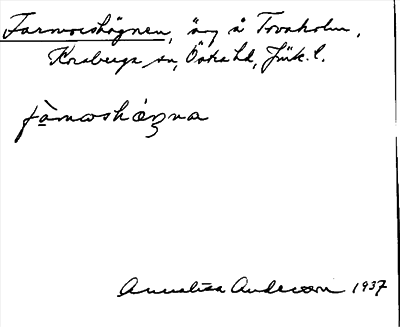 Farmorshögnen, äng å Tovaholm,
Krabergs sn, Östra hd, Jönk. l.
fàrmorshögna
Annalisa Anderson 1937